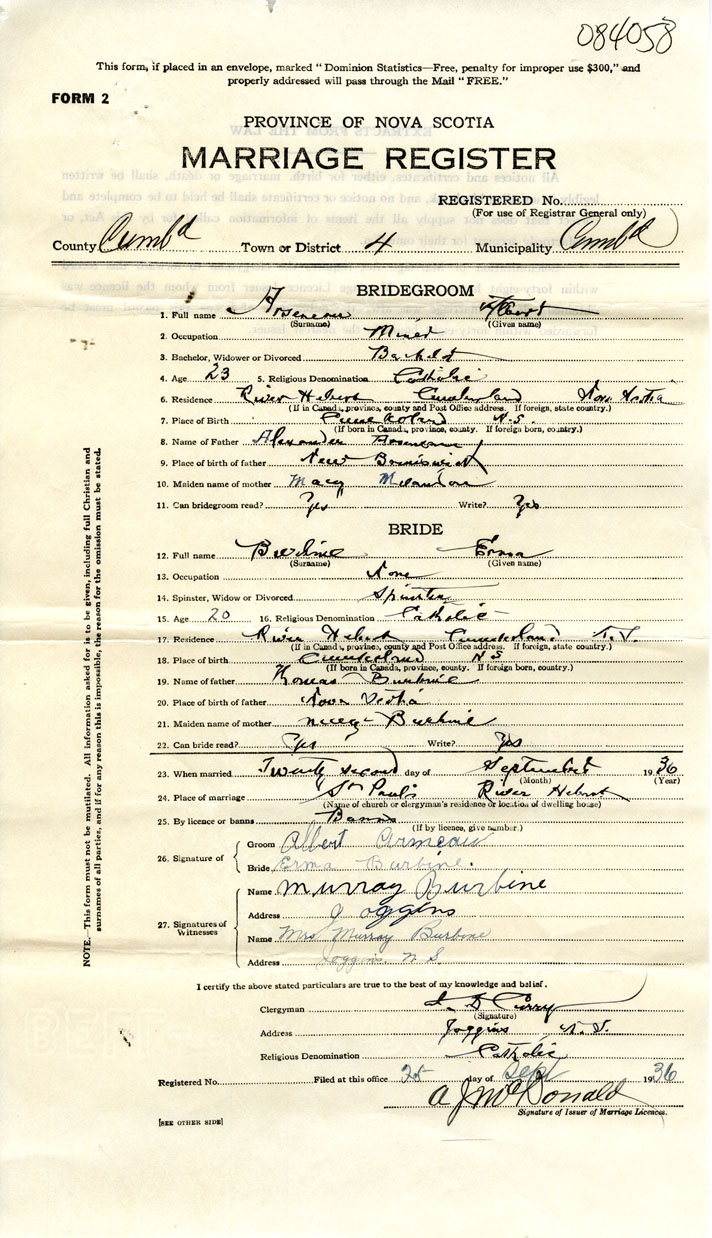 084058
This form, if placed in an envelope, marked "Dominion Statistics—Free, penalty for improper use $300," and
properly addressed will pass through the Mail "FREE."
FORM 2
PROVINCE OF NOVA SCOTIA
MARRIAGE REGISTER
REGISTERED No.
(For use of Registrar General only)
County Cumb'd Town or District 4 Municipality Cumb'd
BRIDEGROOM
1. Full name Arseneau Albert
(Surname) (Given name)
2. Occupation Miner
3. Bachelor, Widower or Divorced Bachelor
4. Age 23 5. Religious Denomination Catholic
6. Residence River Hebert Cumberland Nova Scotia
(If in Canada, province, county and Post Office address. If foreign, state country.)
7. Place of Birth Cumberland N.S.
(If born in Canada, province, county. If foreign born, country.)
8. Name of Father Alexander Arseneau
9. Place of birth of father New Brunswick
10. Maiden name of mother Mary
11. Can bridegroom read? Yes Write? Yes
BRIDE
12. Full name Burbine Erma
(Surname) (Given name)
13. Occupation None
14. Spinster, Widow or Divorced Spinster
15. Age 20 16. Religious Denomination Catholic
17. Residence River Hebert Cumberland N.S.
(If in Canada, province, county and Post Office address. If foreign, state country.)
18. Place of birth Cumberland N S
(If born in Canada, province, county. If foreign born, country.)
19. Name of father Thomas Burbine
20. Place of birth of father Nova Scotia
21. Maiden name of mother Burbine
22. Can bride read? Yes Write? Yes
23. When married Twenty second day of September 1936
(Month) (Year)
24. Place of marriage St Paul's River Hebert
(Name of church or clergyman's residence or location of dwelling house)
25. By licence or banns Banns
(If by licence, give number.)
26. Signature of
Groom Albert
Bride Erma Burbine.
27. Signatures of Witnesses
Name Murray Burbine
Address Joggins
Name Mrs Murray Burbine
Address Joggins N S.
I certify the above stated particulars are true to the best of my knowledge and belief.
Clergyman Curry
(Signature)
Address Joggins N.S.
Religious Denomination Catholic
Registered No. Filed at this office 25 day of Sept 1936
A J McDonald
Signature of Issuer of Marriage Licences.
[SEE OTHER SIDE]
NOTE.—This form must not be mutilated. All information asked for is to be given, including full Christian and
surnames of all parties, and if for any reason this is impossible, the reason for the omission must be stated.